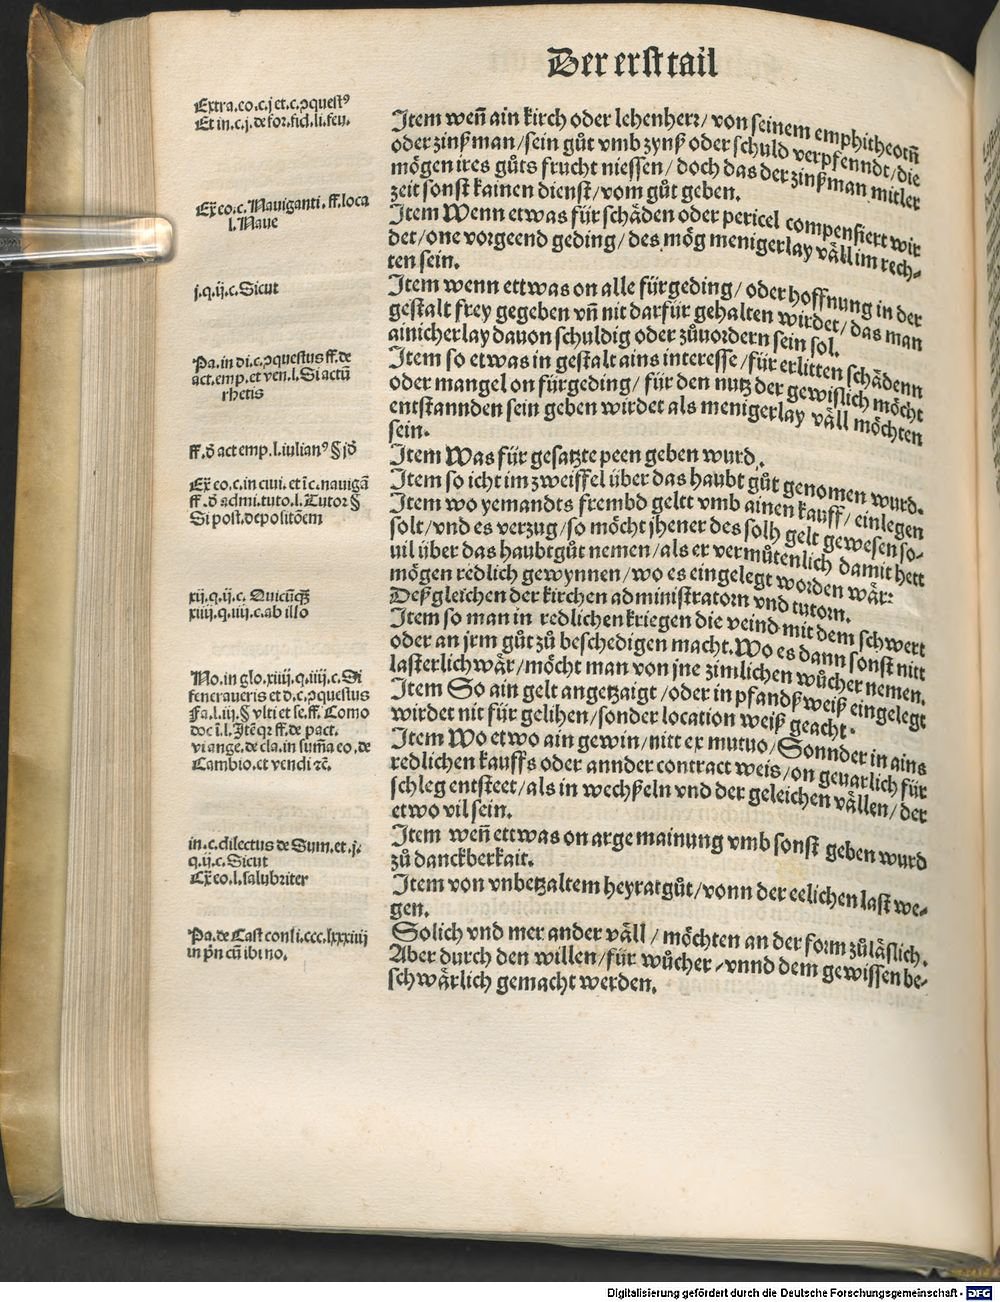 Der erst tail
Extra.eo.c.j et.c.ↄquestꝰ
Et in.c.j.de for.fid.li.feu.
Item weñ ain kirch oder lehenherr/ von seinem emphitheotñ
oder zinßman/sein gůt vmb zynß oder schuld verpfenndt/die
mögen ires gůts frucht niessen/ doch das der zinßman mitler
zeit sonst kainen dienst/vom gůt geben.
Ex̃ eo.c.Nauiganti.ff.loca
l.Naue
Item Wenn etwas für schäden oder pericel compensiert wir
det/one vorgeend geding/ des mög menigerlay väll im rech⸗
ten sein.
j.q.ij.c.Sicut
Item wenn ettwas on alle fürgeding/ oder hoffnung in der
gestalt frey gegeben vñ nit darfür gehalten wirdet/ das man
ainicherlay dauon schuldig oder zůuordern sein sol.
Pa.in di.c.ↄquestus ff.de
act.emp.et ven.l.Si actũ
rhetis
Item so etwas in gestalt ains interesse /für erlitten schädenn
oder mangel on fürgeding/ für den nutz der gewißlich möcht
entstannden sein geben wirdet als menigerlay väll möchten
sein.
ff.đ act emp.l.iulianꝰ § jđ
Item Was für gesatzte peen geben wurd.
Ex̃ eo.c.in ciui.et ĩ c.nauigã
ff.đ admi.tuto.l.Tutor §
Si post.depolitõem
Item so icht im zweiffel über das haubt gůt genomen wurd.
Item wo yemandts frembd geltt vmb ainen kauff/ einlegen
solt/vnd es verzug/so möcht jhener des solh gelt gewesen so⸗
uil über das haubtgůt nemen/als er vermůtenlich damit hett
mögen redlich gewynnen/wo es eingelegt worden wär:
xij.q.ij.c. Quicũqꝫ
xiiij.q.iiij.c.ab illo
Deßgleichen der kirchen administratorn vnd tutorn.
Item so man in redlichen kriegen die veind mit dem schwert
oder an jrm gůt zů beschedigen macht.Wo es dann sonst nitt
lasterlich wär/möcht man von jne zimlichen wůcher nemen.
No.in glo.xiiij.q.iiij.c.Si
feneraueris et đ.c.ↄquestus
Fa.l.iij.§ vlti et se.ff.Como
doc ĩ.l.Itẽqꝫ ff.de pact.
vi ange.de cla.in sum̃a eo.de
Cambio.et vendi ꝛc̃.
Item So ain gelt angetzaigt /oder in pfandß weiß eingelegt
wirdet nit für gelihen/sonder location weiß geacht.
Item Wo etwo ain gewin/nitt ex mutuo/Sonnder in ains
redlichen kauffs oder annder contract weis/on geuarlich für
schleg entsteet/als in wechßeln vnd der geleichen vällen/der
etwo vil sein.
in.c.dilectus de Sum.et.j.
q.ij.c.Sicut
Item weñ ettwas on arge mainung vmb sonst geben wurd
zů danckberkait.
Cx̃ eo.l.salubriter
Item von vnbetzaltem heyratgůt/vonn der eelichen last we⸗
gen.
Pa.de Cast consi.ccc.lxxxiiij
in p̃n cũ ibi no.
Solich vnd mer ander väll / möchten an der form zůläslich.
Aber durch den willen/für wůcher /vnnd dem gewissen be⸗
schwärlich gemacht werden.
Digitalisierung gefördert durch die Deutsche Forschungsgemeinschaft - DFG